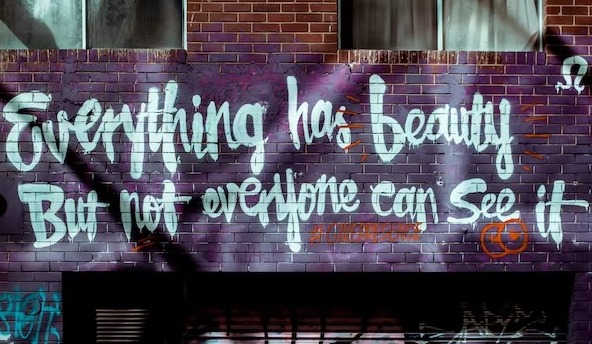 Everything has beauty
But not everyone can see it